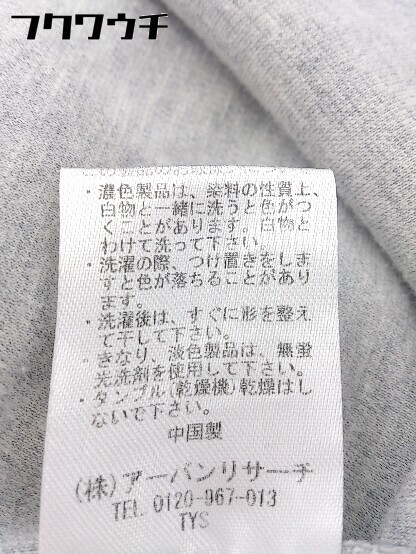 フクワウチ
・濃色製品は、染料の性質上、
白物と一緒に洗うと色がつ
くことがあります。白物と
わけて洗って下さい。
・洗濯の際、つけ置きをしま
すと色が落ちることがあり
ます。
・洗濯後は、すぐに形を整え
て干して下さい。
・きなり、淡色製品は、無蛍
光洗剤を使用して下さい。
・タンブル(乾燥機)乾燥はし
ないで下さい。
中国製
(株)アーバンリサーチ
TEL 0120-967-013
TYS